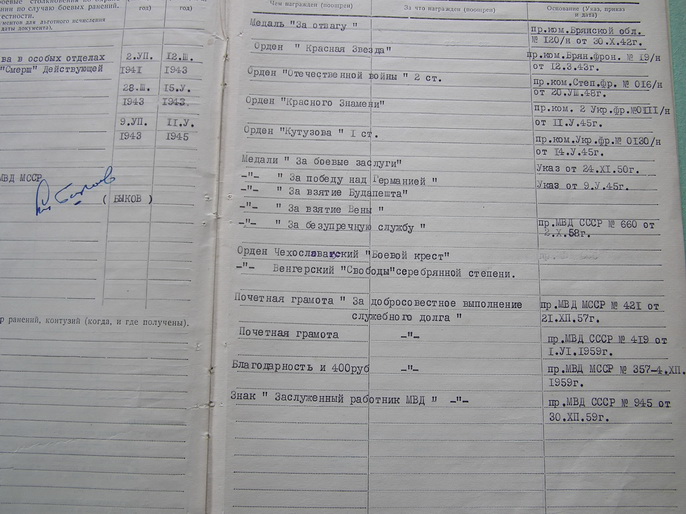 боевых ранений.
тестности.
даты документа).
год)
год)
ва в особых отделах
2.УП.
12.Ш.
"Смерш" Действующей
1941
1943
28.Ш.
15.У.
1943
1943.
9.УП.
II.У.
1943
1945
МВД МССР
( БЫКОВ )
р ранений, контузий (когда, и где получены).
Чем награжден (поощрен)
За что награжден (поощрен)
Основание (Указ, приказ
и дата)
Медаль "За отвагу "
пр.ком.Брянской обл.
№ 120/н от 30.Х.42г.
Орден " Красная Звезда"
пр.ком.Брян.фрон. № 19/н
от 12.3.43г.
Орден "Отечественной войны " 2 ст.
пр.ком.Степ.фр. № 016/н
от 20.УШ.48г.
Орден "Красного Знамени"
пр.ком. 2 Укр.фр.№0III/н
от II.У.45г.
Орден "Кутузова " I ст.
пр.ком.Укр.фр.№ 0130/н
от 14.У.45г.
Медали " За боевые заслуги"
Указ от 24.XI.50г.
-"- " За победу над Германией "
Указ от 9.У.45г.
-"- " За взятие Будапешта"
-"- " За взятие Вены "
-"- " За безупречную службу "
пр.МВД СССР № 660 от
2.Х.58г.
Орден Чехословатский "Боевой крест"
-"- Венгерский "Свободы"серебрянной степени.
Почетная грамота " За добросовестное выполнение
служебного долга "
пр.МВД МССР № 421 от
21.ХП.57г.
Почетная грамота -"-
пр.МВД СССР № 419 от
I.УI.1959г.
Благодарность и 400руб -"-
пр.МВД МССР № 357-4.ХП.
1959г.
Знак " Заслуженный работник МВД " -"-
пр.МВД СССР № 945 от
30.ХП.59г.